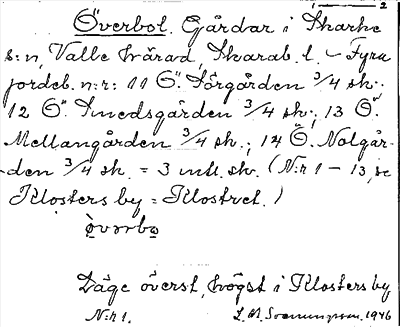 2
Överbol. Gårdar i Skarke
s:n, Valle härad, Skarab. l. – Fyra
jordeb. n:r: 11 Ö. Sörgården 3/4 sk.;
12 Ö. Smedsgården 3/4 sk.; 13 Ö.
Mellangården 3/4 sk.; 14 Ö. Nolgår-
den 3/4 sk. = 3 mtl. sk. (N:r 1 – 13, se
Klosters by = Klostret.)
òvərbo
Läge överst, högst i Klosters by,
N:r 1.
1946